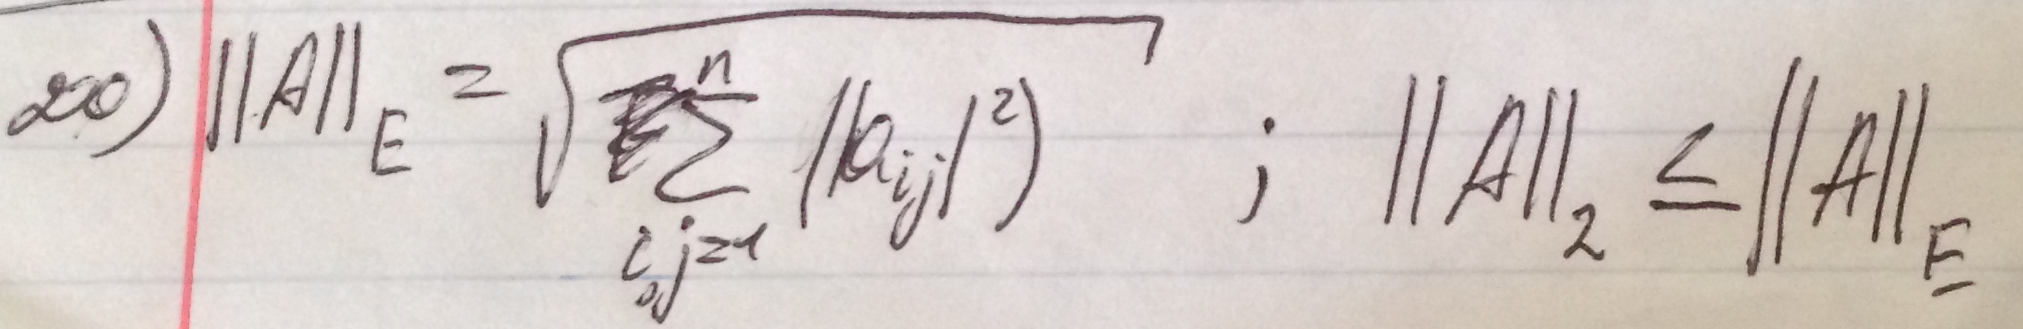 200) ||A||_E = √(∑_{i,j=1}^{n} (|a_{ij}|^2)) ; ||A||_2 ≤ ||A||_E